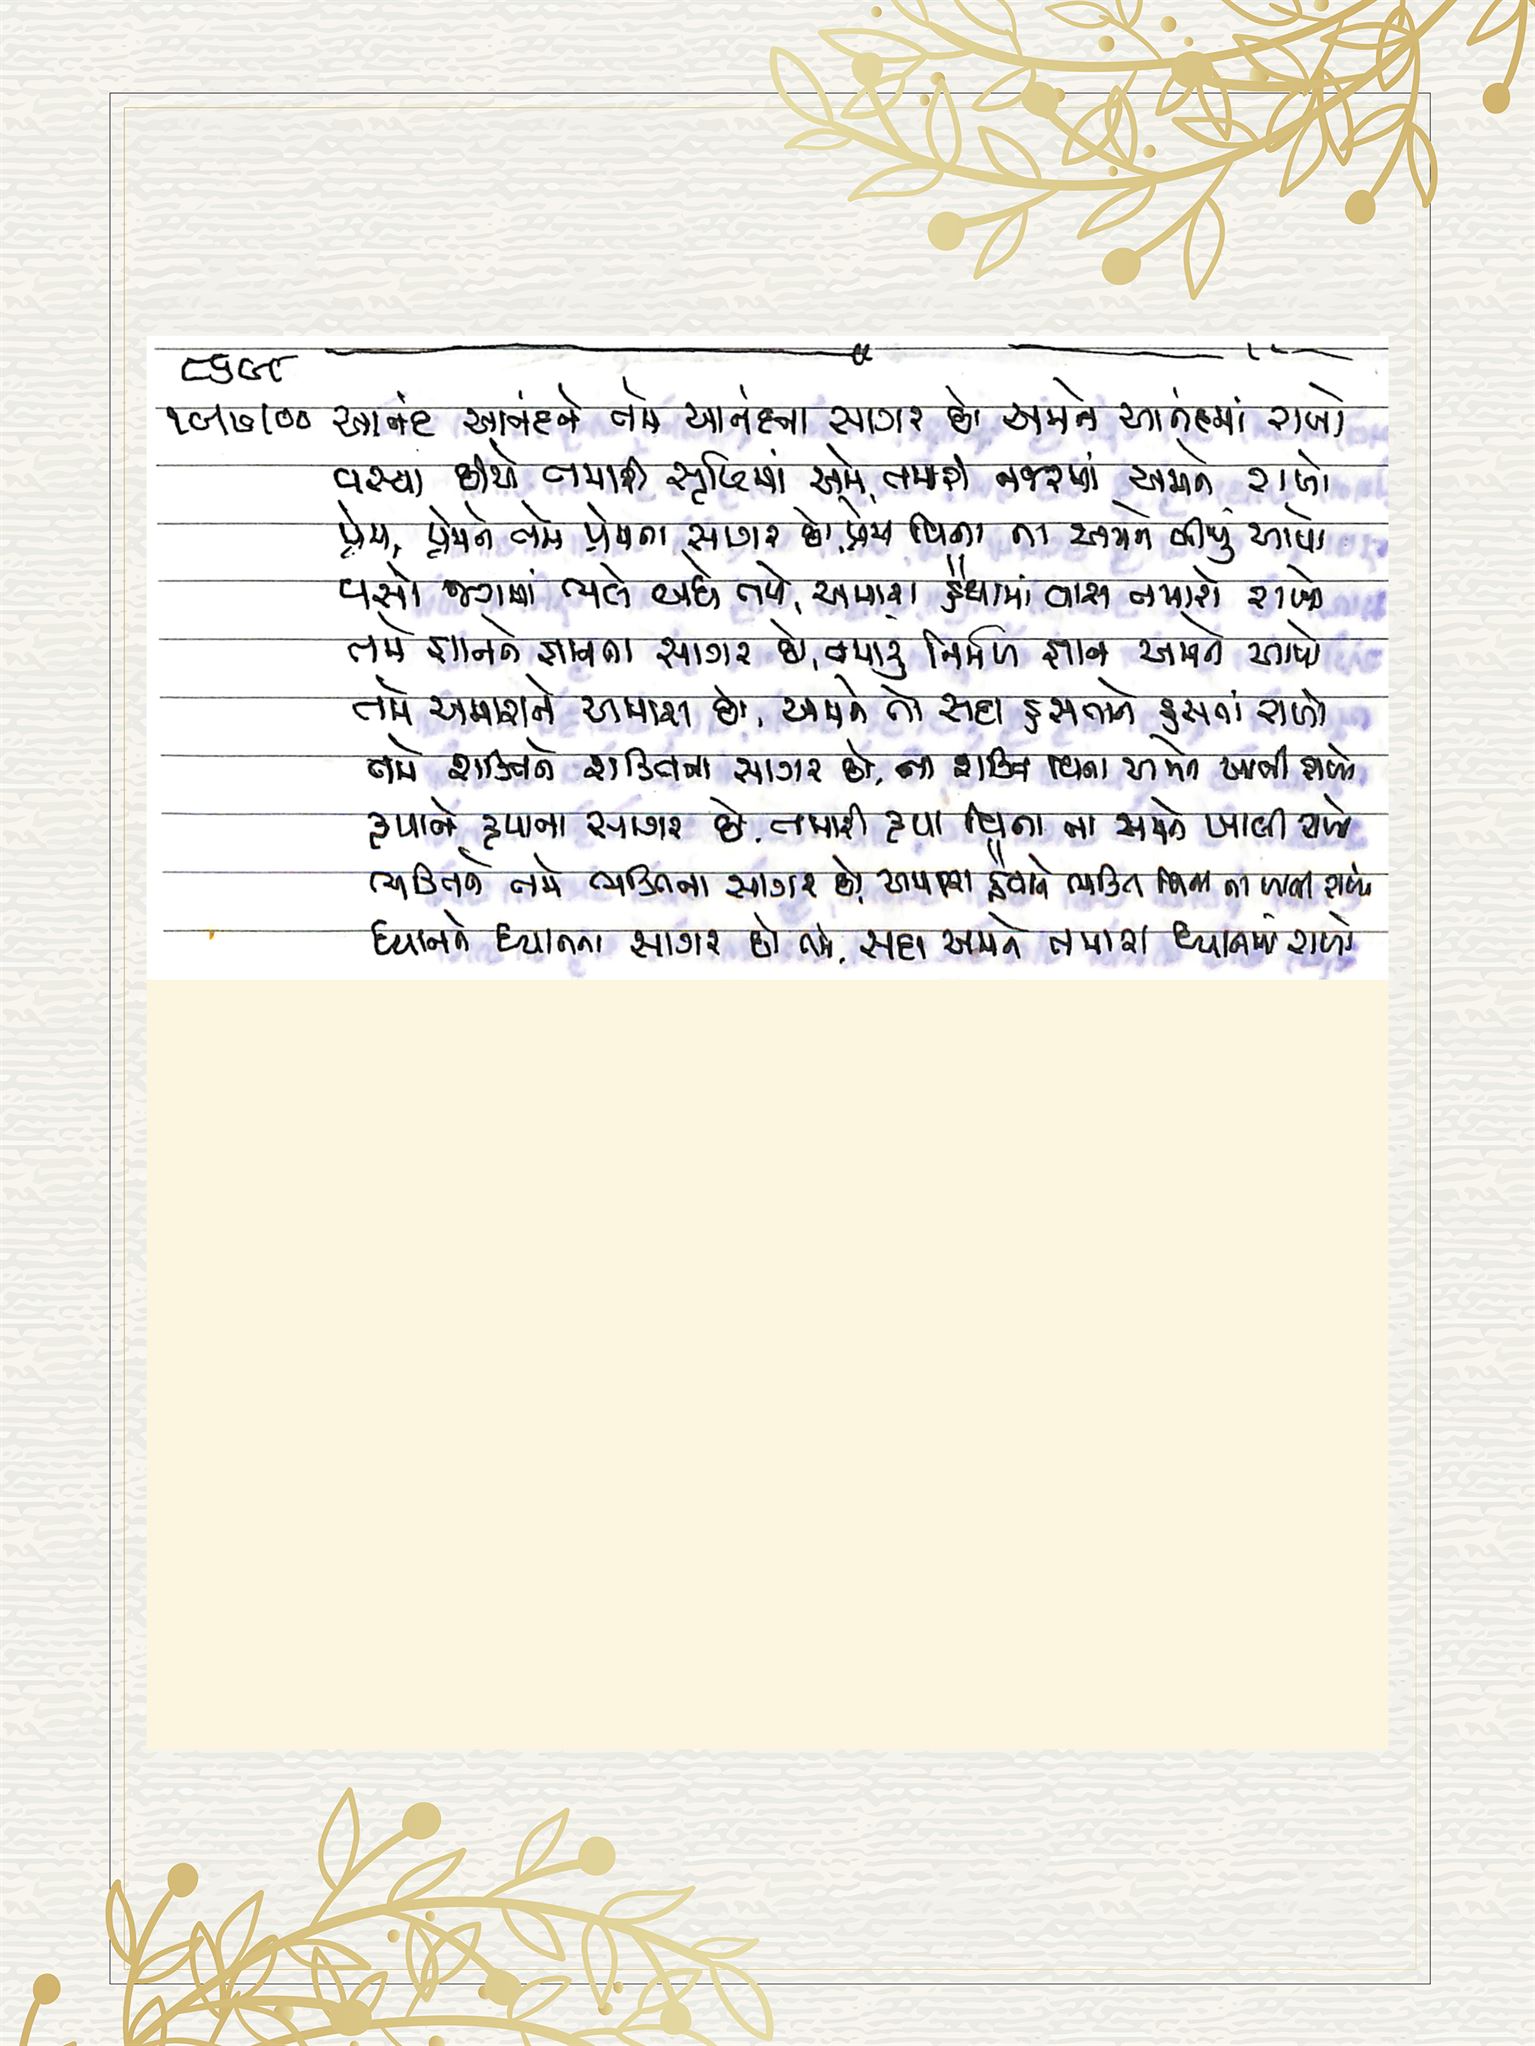 ૮૬૭૯
૧૯/૭/૦૦ આનંદ આનંદને તમે આનંદના સાગર છો અમને આનંદમાં રાખો
વસ્યા છીએ તમારી સૃષ્ટિમાં અમે, તમારી નજરમાં અમને રાખો
પ્રેમ, પ્રેમને તમે પ્રેમના સાગર છો, પ્રેમ વિના ના અમને બીજું આપો
વસો જગમાં ભલે બધે તમે, અમારા હૈયામાં વાસ તમારો રાખો
તમે જ્ઞાનને જ્ઞાનના સાગર છો, તમારું નિર્મળ જ્ઞાન અમને આપો
તમે અમારાને અમારા છો, અમને તો સદા હસતાને હસતાં રાખો
તમે શક્તિને શક્તિના સાગર છો, ના શક્તિ વિના અમને ખાલી રાખો
કૃપાને કૃપાના સાગર છો, તમારી કૃપા વિના ના અમને ખાલી રાખો
ભક્તિને તમે ભક્તિના સાગર છો, અમારા હૈયાને ભક્તિ વિના ના ખાલી રાખો
ધ્યાનને ધ્યાનના સાગર છો તમે, સદા અમને તમારા ધ્યાનમાં રાખો